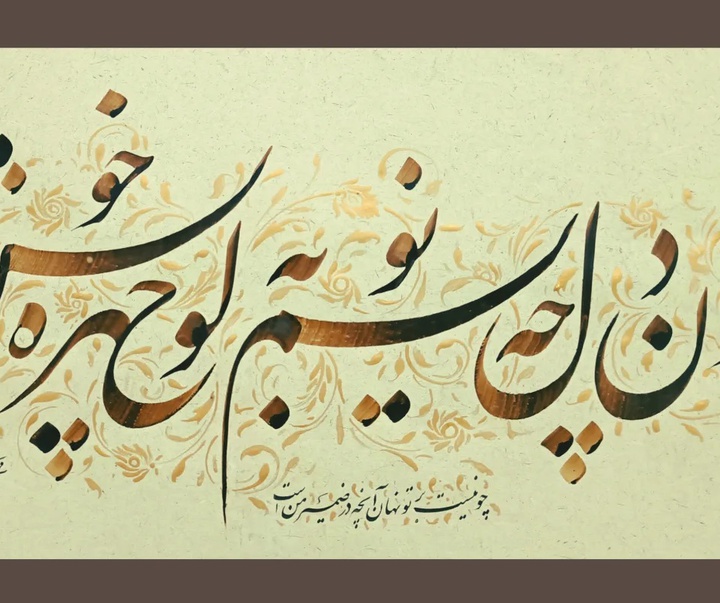 دل چه نویسم به لوح چهره خویش
چو نیست بر تو نهان آنچه در ضمیر من است